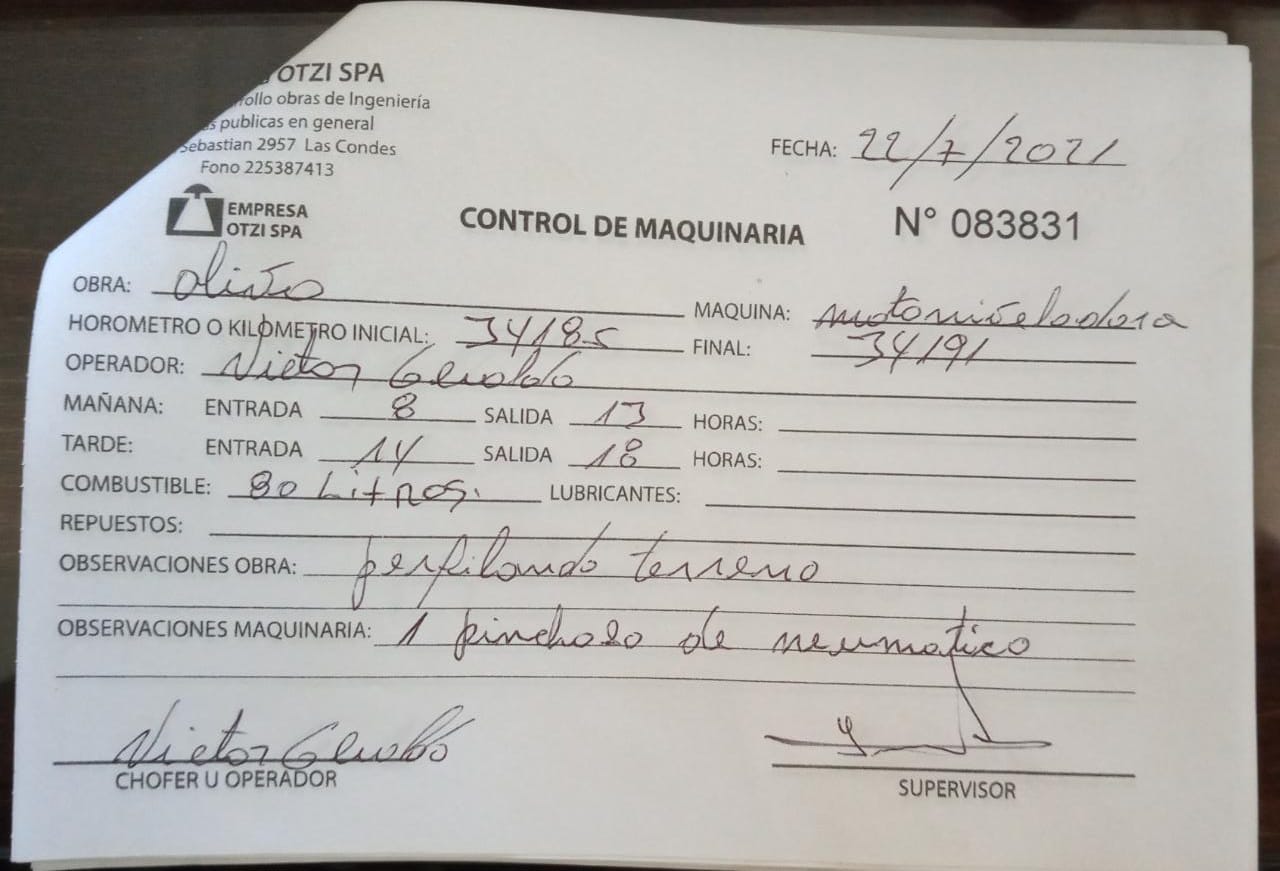 OTZI SPA
rollo obras de Ingeniería
es publicas en general
Sebastian 2957 Las Condes
Fono 225387413
EMPRESA
OTZI SPA
FECHA: 22/7/2021
CONTROL DE MAQUINARIA N° 083831
OBRA: MAQUINA: motoniveladora
HOROMETRO O KILOMETRO INICIAL: 34185 FINAL: 34191
OPERADOR: Victor
MAÑANA: ENTRADA 8 SALIDA 13 HORAS:
TARDE: ENTRADA 14 SALIDA 18 HORAS:
COMBUSTIBLE: 80 Litros. LUBRICANTES:
REPUESTOS:
OBSERVACIONES OBRA: perfilando terreno
OBSERVACIONES MAQUINARIA: 1 pinchaso de neumatico
Victor
CHOFER U OPERADOR
SUPERVISOR